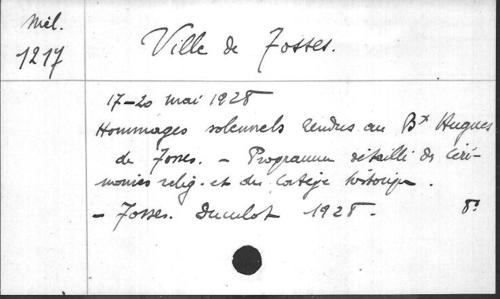 Mél.
1217
Ville de Fosses.
17-20 mai 1928
Hommages solennels rendus au Bx Hugues
de Fosses. - Programme détaillé des céré-
monies relig. et du Cortège historique.
- Fosses. Duculot 1928. 8°